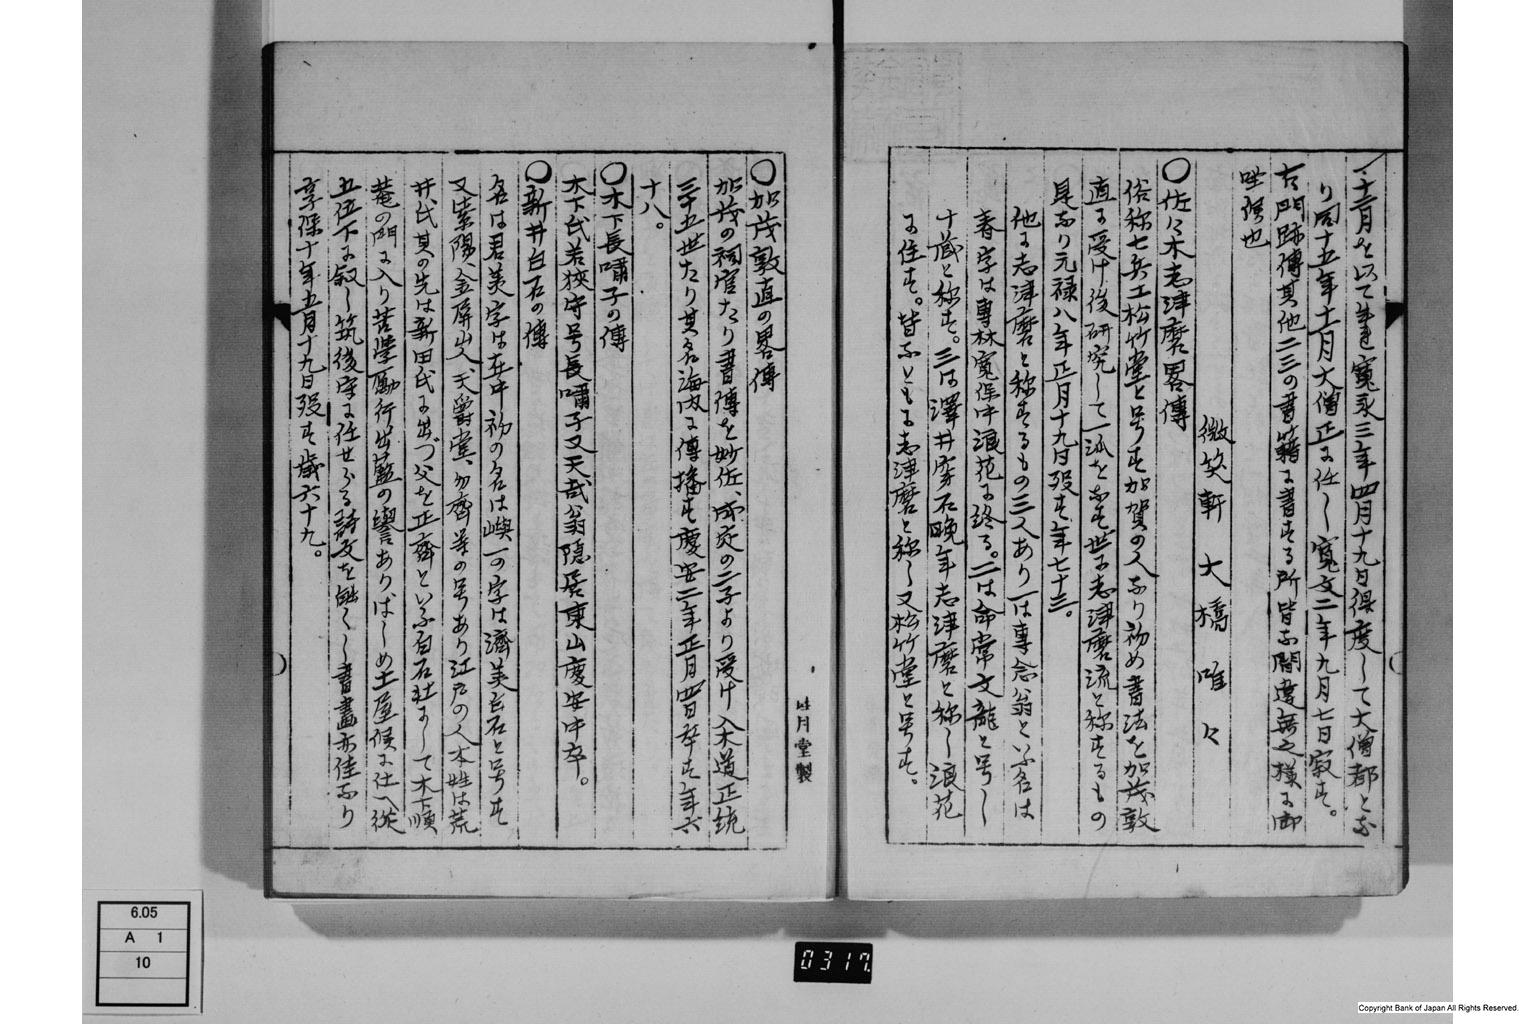 十二月を以て生る寛永三年四月十九日得度して大僧都とな
り同十五年十二月大僧正に任し寛文二年九月七日寂す。
右門跡傳其他二三の書籍に書する所皆な闕畫無之様に御
坐候也
微笑軒 大橋唯々
〇佐々木志津磨畧傳
俗称七兵エ松竹堂と号す加賀の人なり初め書法を加茂敦
直に受け後研究して一派をなす世に志津磨流と称するもの
是なり元禄八年正月十九日殁す年七十三。
他に志津磨と称するもの三人あり一は專念翁といふ名は
春字は專林寛保中浪花に終る。二は命常文龍と号し
十蔵と称す。三は澤井穿石晩年志津磨と称し浪花
に住す。皆なともに志津磨と称し又松竹堂と号す。
〇加茂敦直の畧傳
加茂の祠官たり書傳を妙佐、成定の二子より受け入木道正統
三十五世たり其名海内に傳播す慶安二年正月四日卒す年六
十八。
〇木下長嘯子の傳
木下氏若狹守号長嘯子又天哉翁隠居東山慶安中卒。
〇新井白石の傳
名は君美字は在中初の名は嶼一の字は濟美白石と号す
又紫陽、金屏山人、天爵堂、勿齊等の号あり江戸の人本姓は荒
井氏其の先は新田氏に出づ父を正齊といふ白石壮にして木下順
菴の門に入り苦學勵行出藍の譽ありはしめ土屋侯に仕へ從
五位下に叙し筑後守に任せらる詩文を能くし書畫亦佳なり
享保十年五月十九日殁す歳六十九。
月堂製
6.05
A 1
10
0317
Copyright Bank of Japan All Rights Reserved.